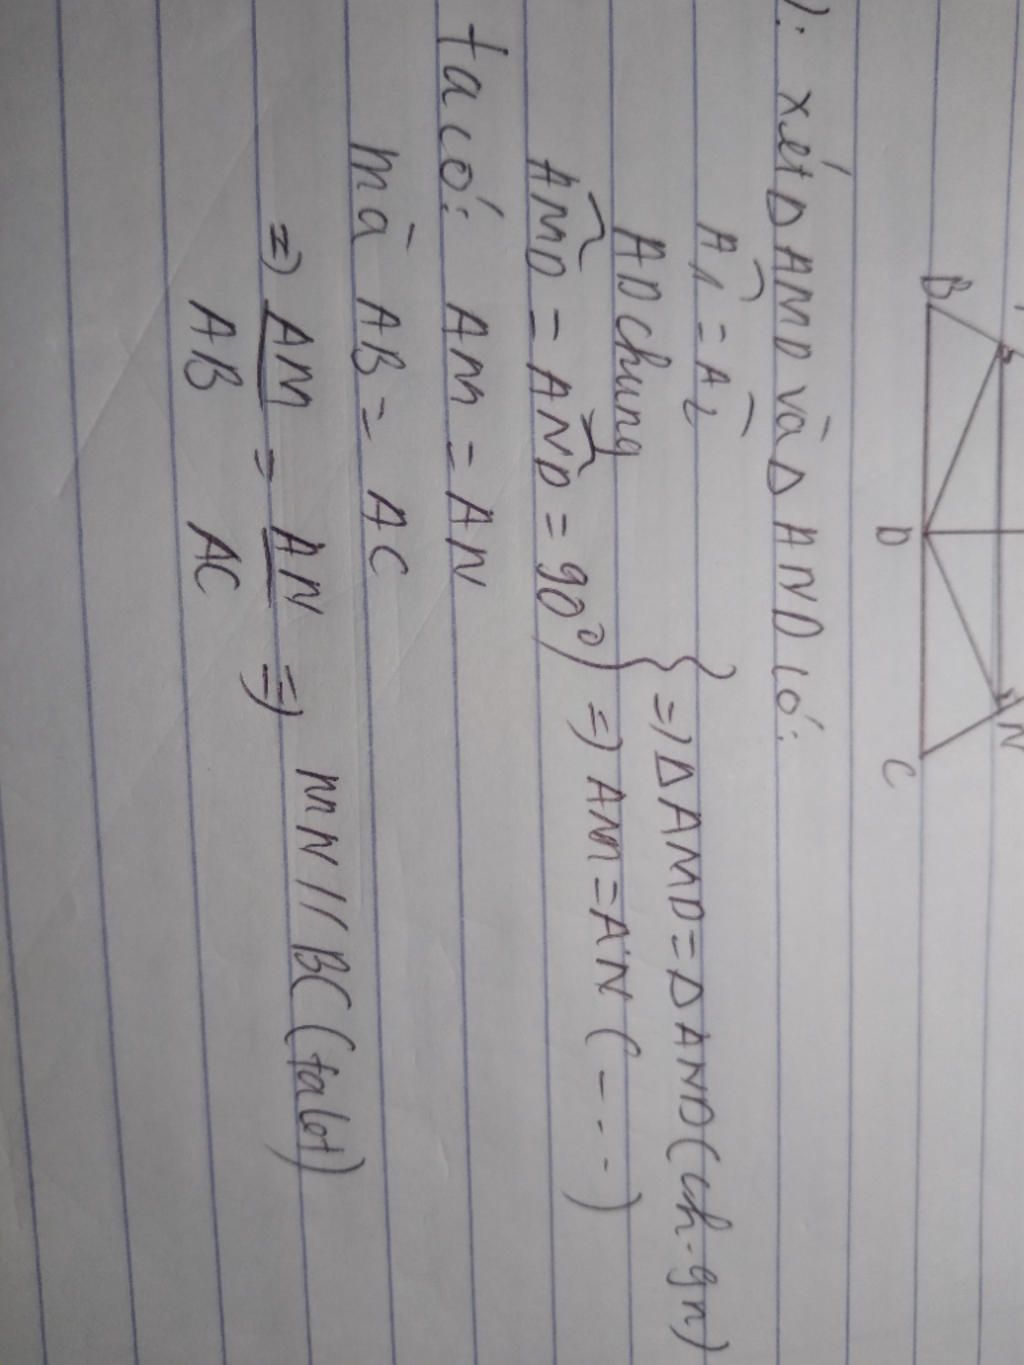 B
N
D
C
): xét Δ AMD và Δ AND có:
Â₁ = Â₂
AD chung
} => Δ AMD = Δ AND (ch-gn)
AM̂D = AN̂D = 90°
=> AM = AN (----)
ta có: AM = AN
mà AB = AC
=> AM/AB = AN/AC => MN // BC (talet)